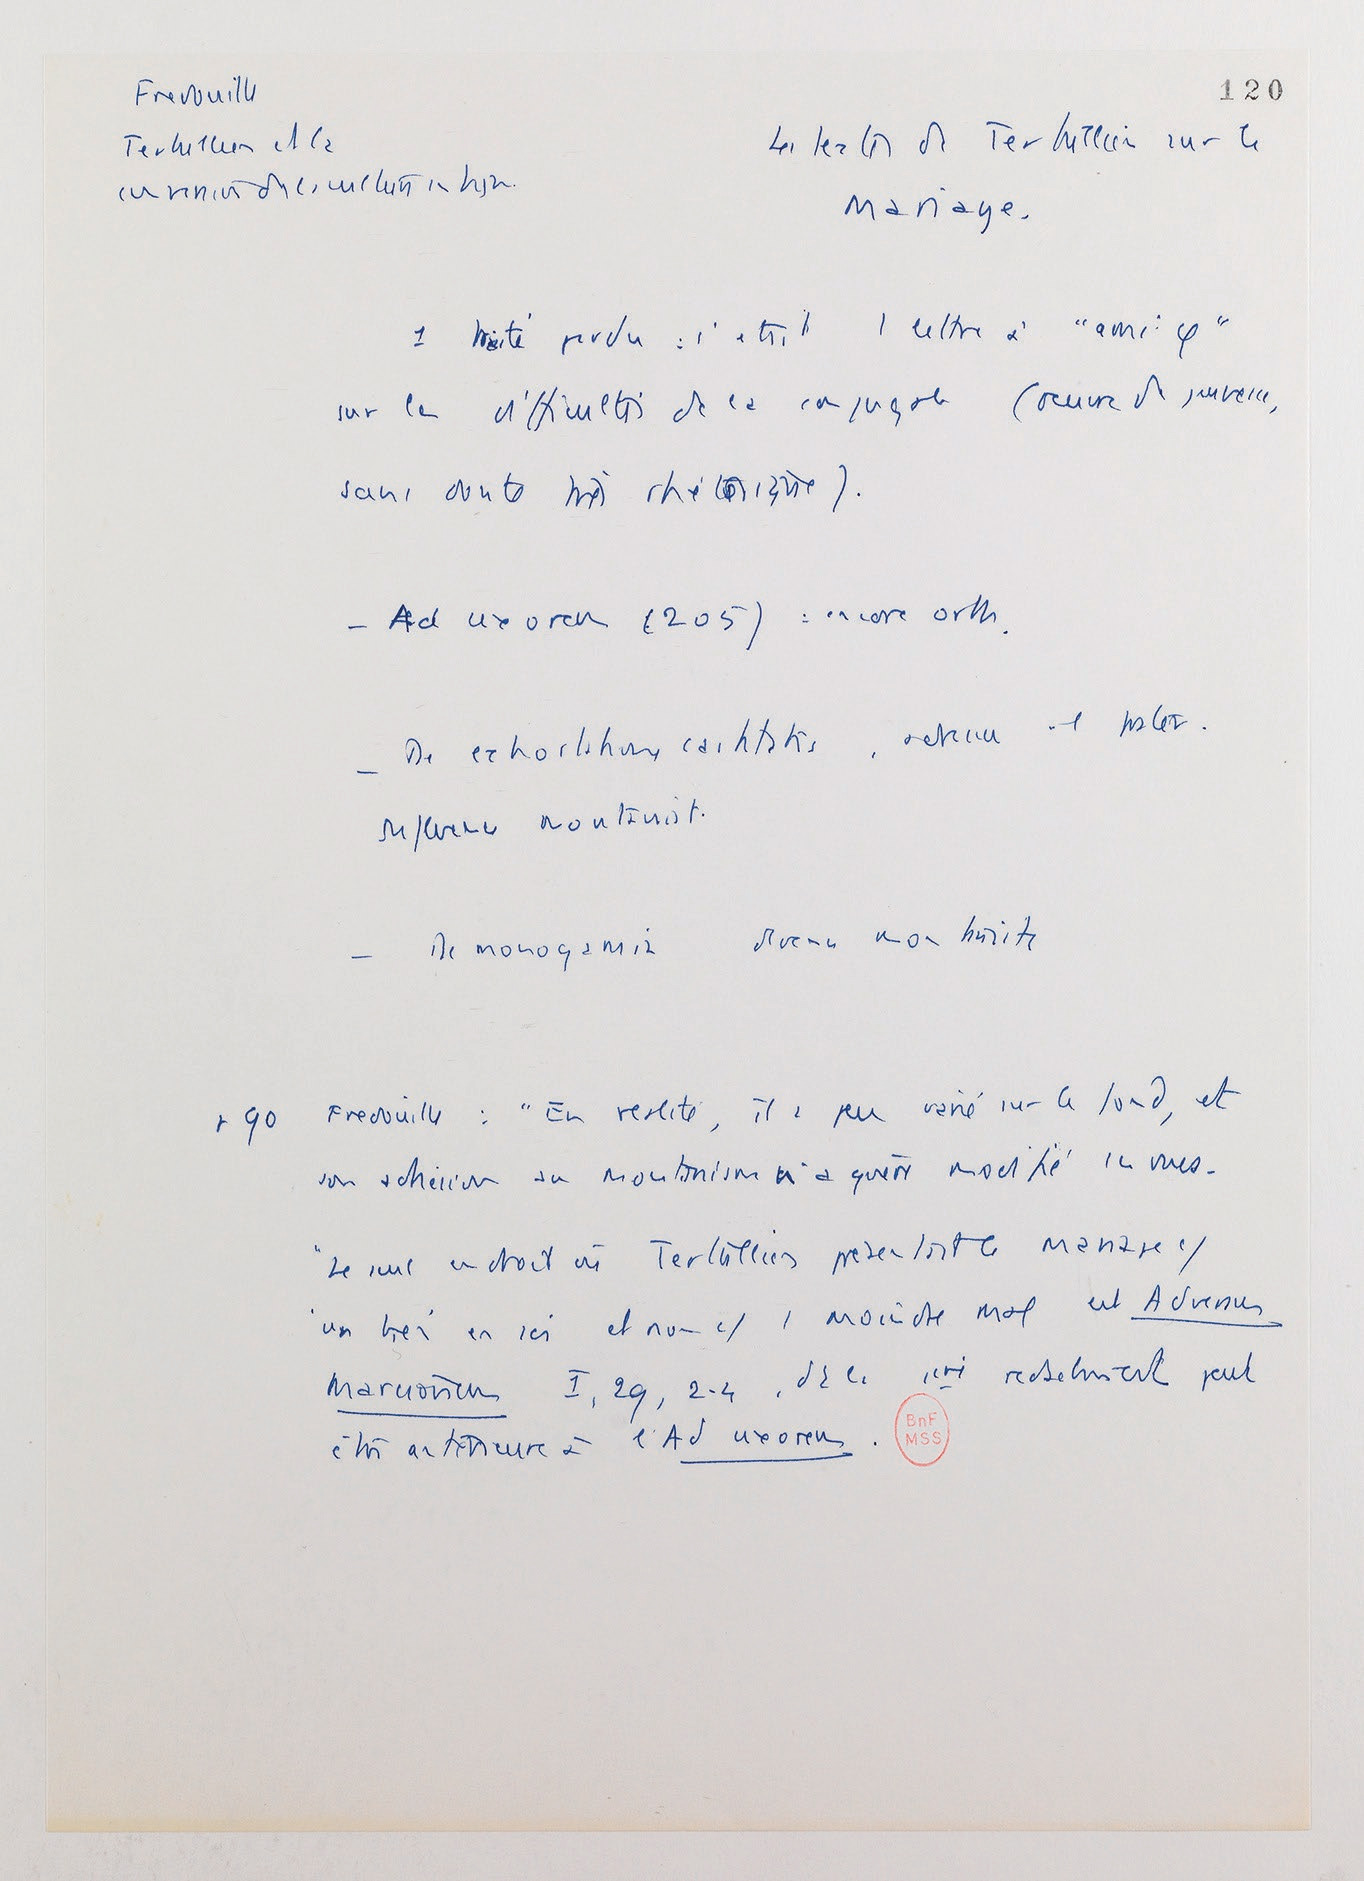 120
Fredouille
Tertullien et la
conversion de la culture antique.
Les textes de Tertullien sur le
Mariage.
1 traité perdu : c'était 1 lettre à "ami φ"
sur les difficultés de la conjugale (œuvre de jeunesse,
sans doute très rhétorisée).
– Ad uxorem (205) : encore orth.
– De exhortatione castitatis,
influence montanist.
– De monogamia devenu montaniste
p 90 Fredouille : "En réalité, il a peu varié sur le fond, et
son adhésion au montanisme n'a guère modifié ses vues.
"Le seul endroit où Tertullien présentait le mariage c/
un bien en soi et non c/ 1 moindre mal est Adversus
Marcionem I, 29, 2-4, dt la 1ère rédaction peut
être antérieure à l'Ad uxorem.
BnF
MSS